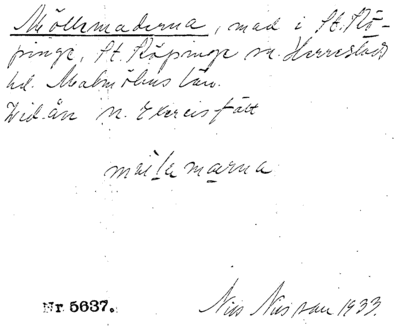 Möllemaderna, mad i St. Kö-
pinge, St. Köpinge sn. Herrestads
hd. Malmöhus län.
Vid ån n. Exercisfält
Nr 5637.
Nils Nilsson 1933.